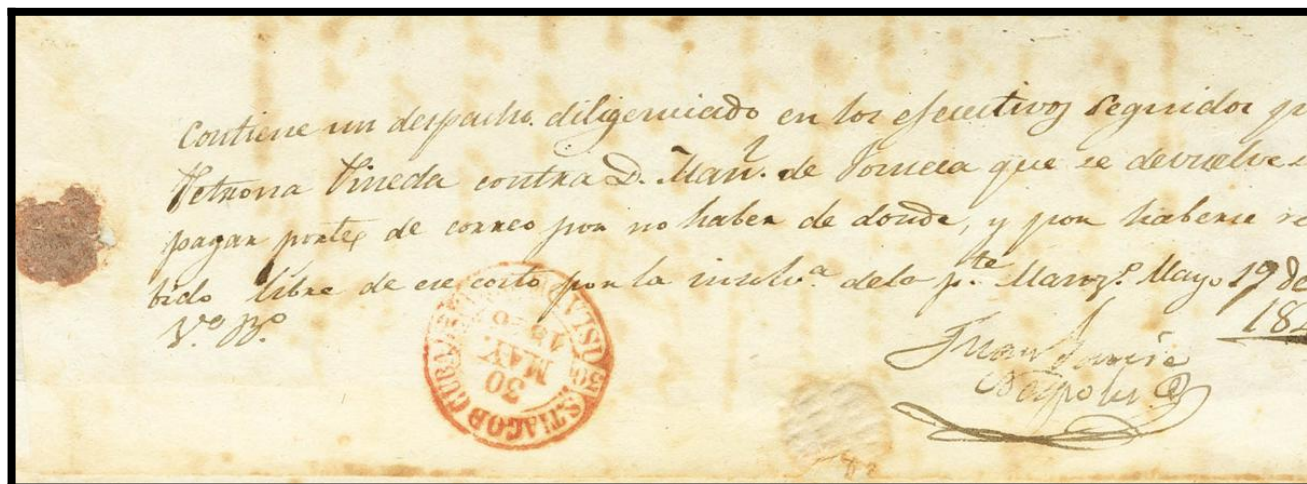 Contiene un despacho diligenciado en los efecutivos seguidos
Petrona Pineda contra D. Man.l de Fonseca que se devuelve
pagar portes de correo por no haber de donde, y por haberse re
bido libre de ese costo por la insolv.a dela p.te Manz.o Mayo 19 de
V.o B.o
Juan
30
MAY.